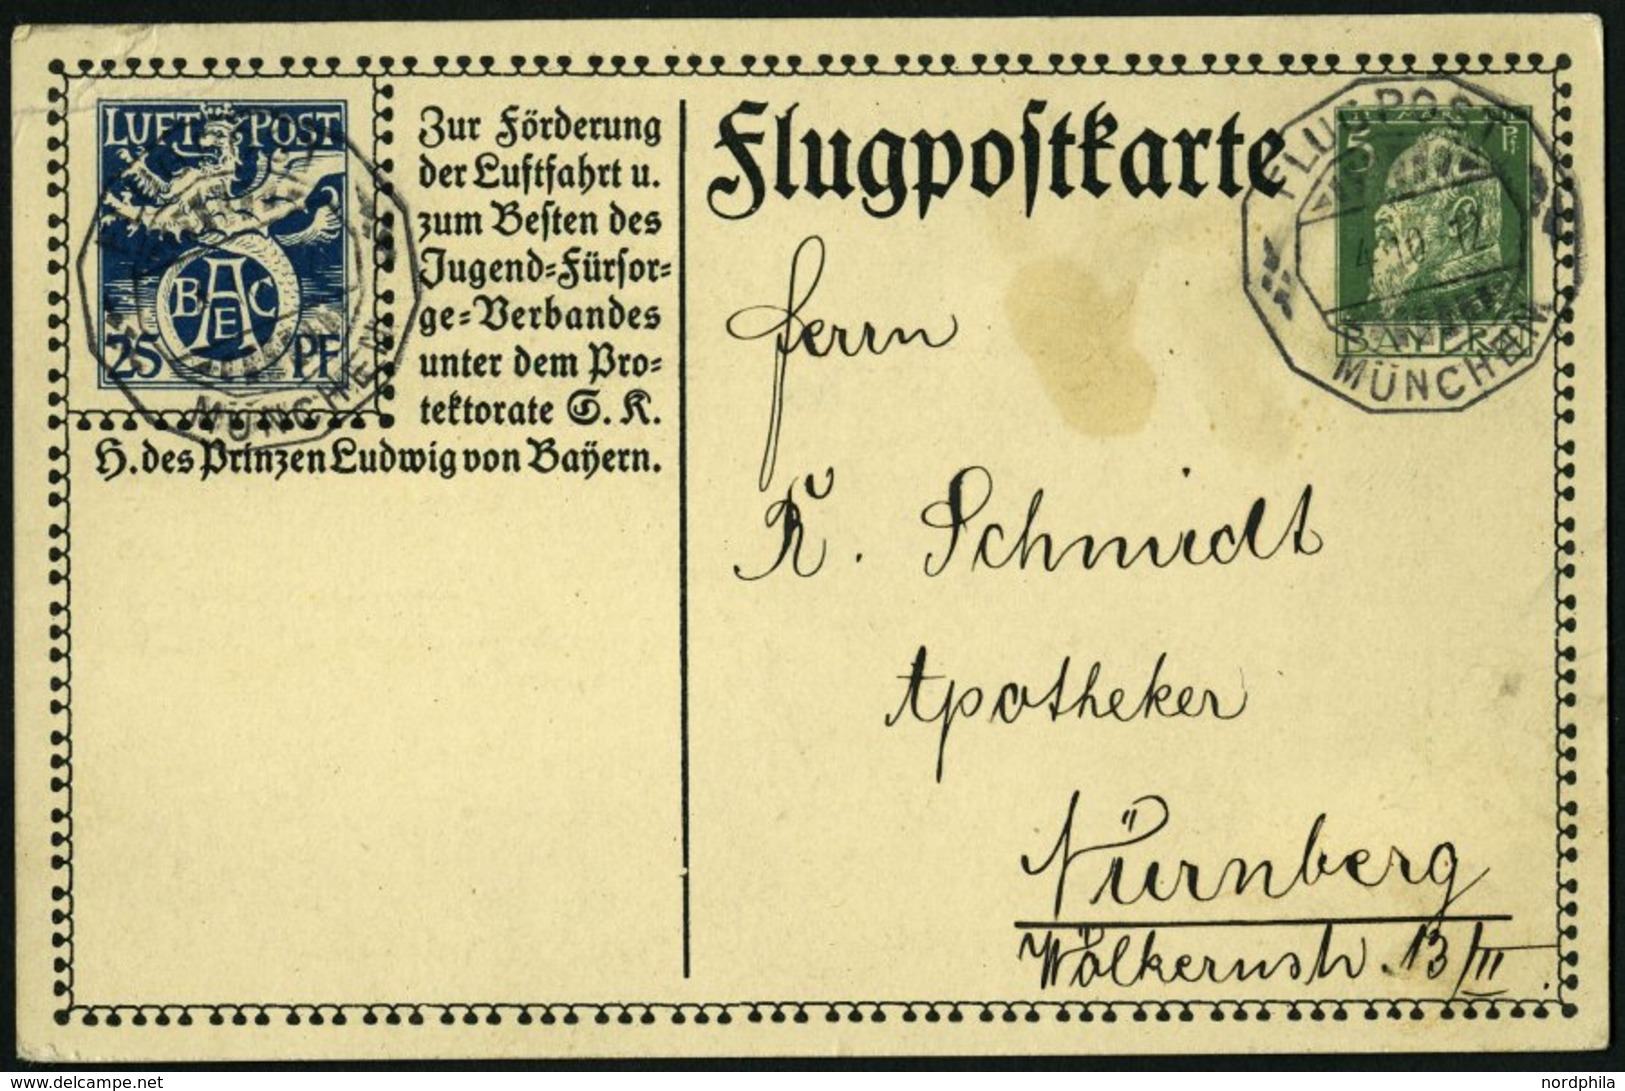 LUFT POST
BAEC
25 PF
Zur Förderung
der Luftfahrt u.
zum Besten des
Jugend=Fürsor=
ge=Verbandes
unter dem Pro=
tektorate S. K.
H. des Prinzen Ludwig von Bayern.
MÜNCHEN
Flugpostkarte
5 Pf
BAYERN
FLUGPOST
4 10 12
MÜNCHEN
Herrn
R. Schmidt
Apotheker
Nürnberg
Wölkernstr. 13/III.
nordphila